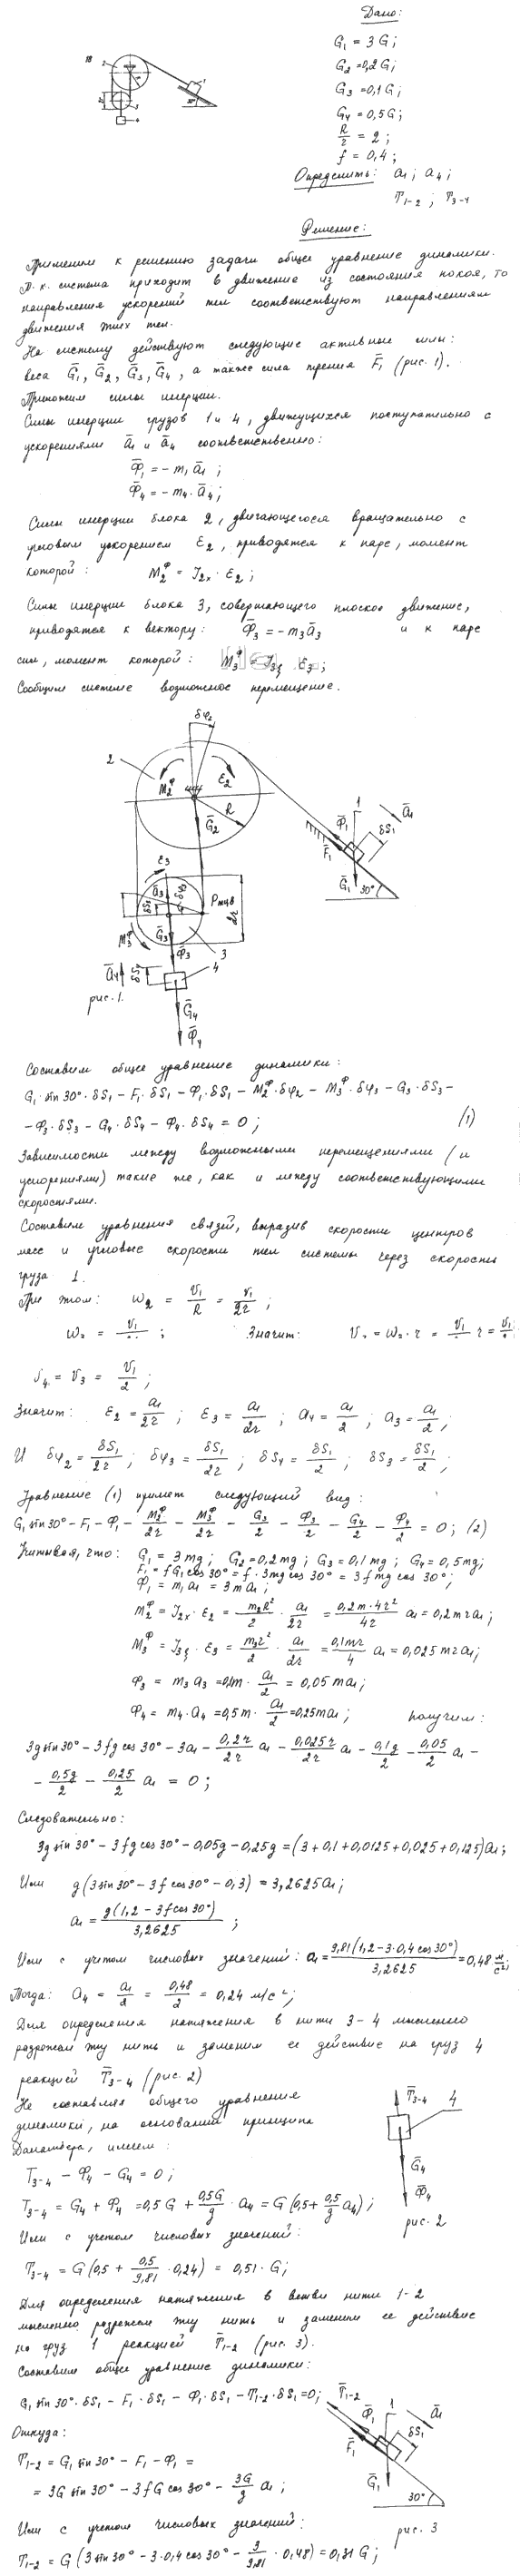 Дано:
G₁ = 3G;
G₂ = 0,2G;
G₃ = 0,1G;
G₄ = 0,5G;
R/r = 2;
f = 0,4;
Определить: a₁; a₄;
T₁₋₂; T₃₋₄
18
2
1
3
4
30°
Решение:
Применим к решению задачи общее уравнение динамики.
Т.к. система приходит в движение из состояния покоя, то
направления ускорений тел соответствуют направлениям
движения этих тел.
На систему действуют следующие активные силы:
веса G̅₁, G̅₂, G̅₃, G̅₄, а также сила трения F̅₁ (рис. 1).
Приложим силы инерции.
Силы инерции грузов 1 и 4, движущихся поступательно с
ускорениями a̅₁ и a̅₄ соответственно:
Ф̅₁ = – m₁a̅₁;
Ф̅₄ = – m₄·a̅₄;
Силы инерции блока 2, двигающегося вращательно с
угловым ускорением ε₂, приводятся к паре, момент
которой: M₂ᶲ = J₂ₓ·ε₂;
Силы инерции блока 3, совершающего плоское движение,
приводятся к вектору: Ф̅₃ = – m₃a̅₃ и к паре
сил, момент которой: M₃ᶲ = J₃ξ ε₃;
Сообщим системе возможное перемещение.
δφ₂
2
M₂ᶲ
ε₂
G̅₂
R
1
Ф̅₁
a̅₁
δS₁
F̅₁
G̅₁
30°
ε₃
a̅₃
δφ₃
δS₃
Pмцв
2r
M₃ᶲ
G̅₃
Ф̅₃
3
4
a̅₄
δS₄
G̅₄
Ф̅₄
рис. 1.
Составим общее уравнение динамики:
G₁·sin30°·δS₁ – F₁·δS₁ – Ф₁·δS₁ – M₂ᶲ·δφ₂ – M₃ᶲ·δφ₃ – G₃·δS₃ –
– Ф₃·δS₃ – G₄·δS₄ – Ф₄·δS₄ = 0; (1)
Зависимости между возможными перемещениями (и
ускорениями) такие же, как и между соответствующими
скоростями.
Составим уравнения связей, выразив скорости центров
масс и угловые скорости тел системы через скорость
груза 1.
При этом: ω₂ = V₁/R = V₁/2r;
ω₃ = V₁ ; Значит: V₃ = ω₃·r = V₁ r = V₁
V₄ = V₃ = V₁/2;
Значит: ε₂ = a₁/2r; ε₃ = a₁/2r; a₄ = a₁/2; a₃ = a₁/2;
И δφ₂ = δS₁/2r; δφ₃ = δS₁/2r; δS₄ = δS₁/2; δS₃ = δS₁/2;
Уравнение (1) примет следующий вид:
G₁ sin30° – F₁ – Ф₁ – M₂ᶲ/2r – M₃ᶲ/2r – G₃/2 – Ф₃/2 – G₄/2 – Ф₄/2 = 0; (2)
Учитывая, что: G₁ = 3mg; G₂ = 0,2mg; G₃ = 0,1mg; G₄ = 0,5mg;
F₁ = fG₁cos30° = f·3mg cos30° = 3fmg cos30°;
Ф₁ = m₁a₁ = 3ma₁;
M₂ᶲ = J₂ₓ·ε₂ = m₂R²/2 · a₁/2r = 0,2m·4r²/4r a₁ = 0,2mra₁;
M₃ᶲ = J₃ξ·ε₃ = m₃r²/2 · a₁/2r = 0,1mr/4 a₁ = 0,025mra₁;
Ф₃ = m₃a₃ = 0,1m·a₁/2 = 0,05ma₁;
Ф₄ = m₄·a₄ = 0,5m·a₁/2 = 0,25ma₁; получим:
3g sin30° – 3fg cos30° – 3a₁ – 0,2r/2r a₁ – 0,025r/2r a₁ – 0,1g/2 – 0,05/2 a₁ –
– 0,5g/2 – 0,25/2 a₁ = 0;
Следовательно:
3g sin30° – 3fg cos30° – 0,05g – 0,25g = (3 + 0,1 + 0,0125 + 0,025 + 0,125)a₁;
Или g(3sin30° – 3fcos30° – 0,3) = 3,2625a₁;
a₁ = g(1,2 – 3fcos30°)/3,2625;
Или с учетом числовых значений: a₁ = 9,81(1,2 – 3·0,4cos30°)/3,2625 = 0,48 м/с²;
Тогда: a₄ = a₁/2 = 0,48/2 = 0,24 м/с²;
Для определения натяжения в нити 3-4 мысленно
разрежем эту нить и заменим ее действие на груз 4
реакцией T̅₃₋₄ (рис. 2)
Не составляя общего уравнения
динамики, на основании принципа
Даламбера, имеем:
T₃₋₄ – Ф₄ – G₄ = 0;
T₃₋₄ = G₄ + Ф₄ = 0,5G + 0,5G/g · a₄ = G(0,5 + 0,5/g a₄);
Или с учетом числовых значений:
T₃₋₄ = G(0,5 + 0,5/9,81 · 0,24) = 0,51·G;
T̅₃₋₄
4
G̅₄
Ф̅₄
рис. 2
Для определения натяжения в ветви нити 1-2
мысленно разрежем эту нить и заменим ее действие
на груз 1 реакцией T̅₁₋₂ (рис. 3).
Составим общее уравнение динамики:
G₁ sin30°·δS₁ – F₁·δS₁ – Ф₁·δS₁ – T₁₋₂·δS₁ = 0;
Откуда:
T₁₋₂ = G₁ sin30° – F₁ – Ф₁ =
= 3G sin30° – 3fG cos30° – 3G/g a₁;
Или с учетом числовых значений:
T₁₋₂ = G(3sin30° – 3·0,4cos30° – 3/9,81 · 0,48) = 0,31G;
T̅₁₋₂
Ф̅₁
1
a̅₁
F̅₁
δS₁
G̅₁
30°
рис. 3